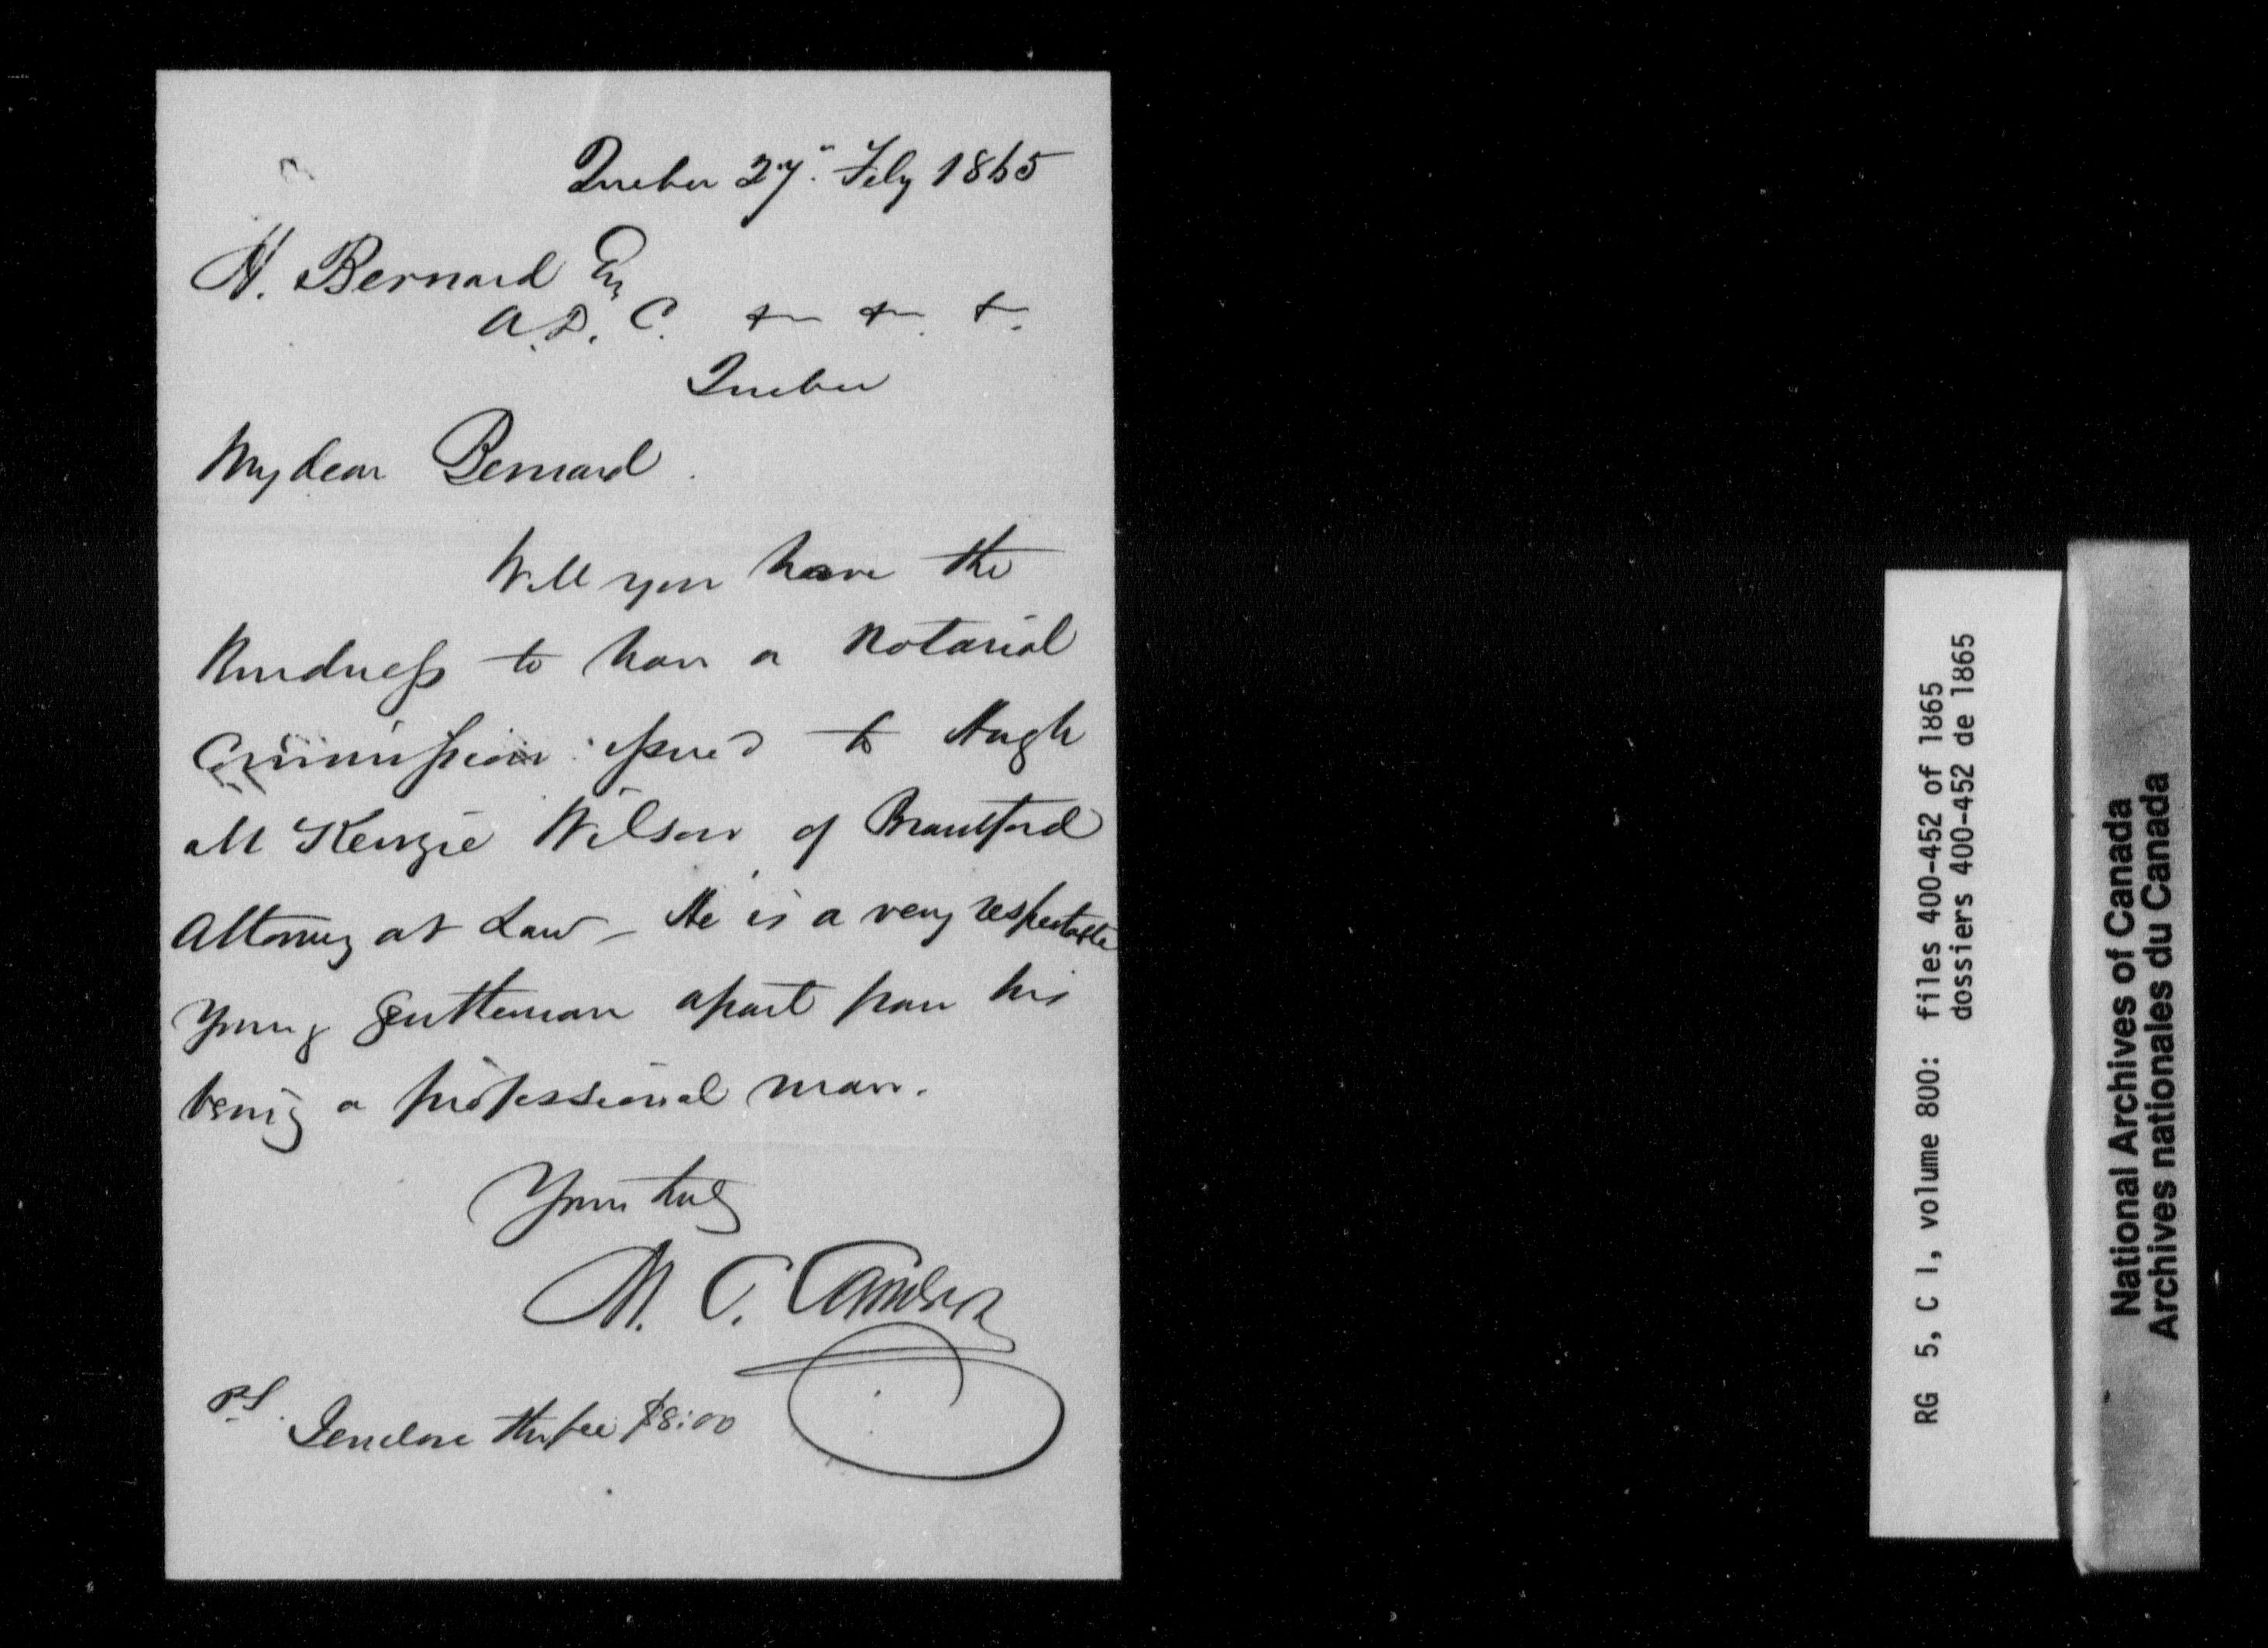 Quebec 27th Feby 1865
H. Bernard Esq
A.D.C. &c &c &c.
Quebec
My dear Bernard.
Will you have the
Kindness to have a Notarial
Commission issued to Hugh
McKenzie Wilson of Brantford
Attorney at Law – He is a very respectable
young gentleman apart from his
being a professional man.
Yours truly
M. C. Cameron
P.S. I enclose the fee $8:00
RG 5, C 1, volume 800: files 400-452 of 1865
dossiers 400-452 de 1865
National Archives of Canada
Archives nationales du Canada